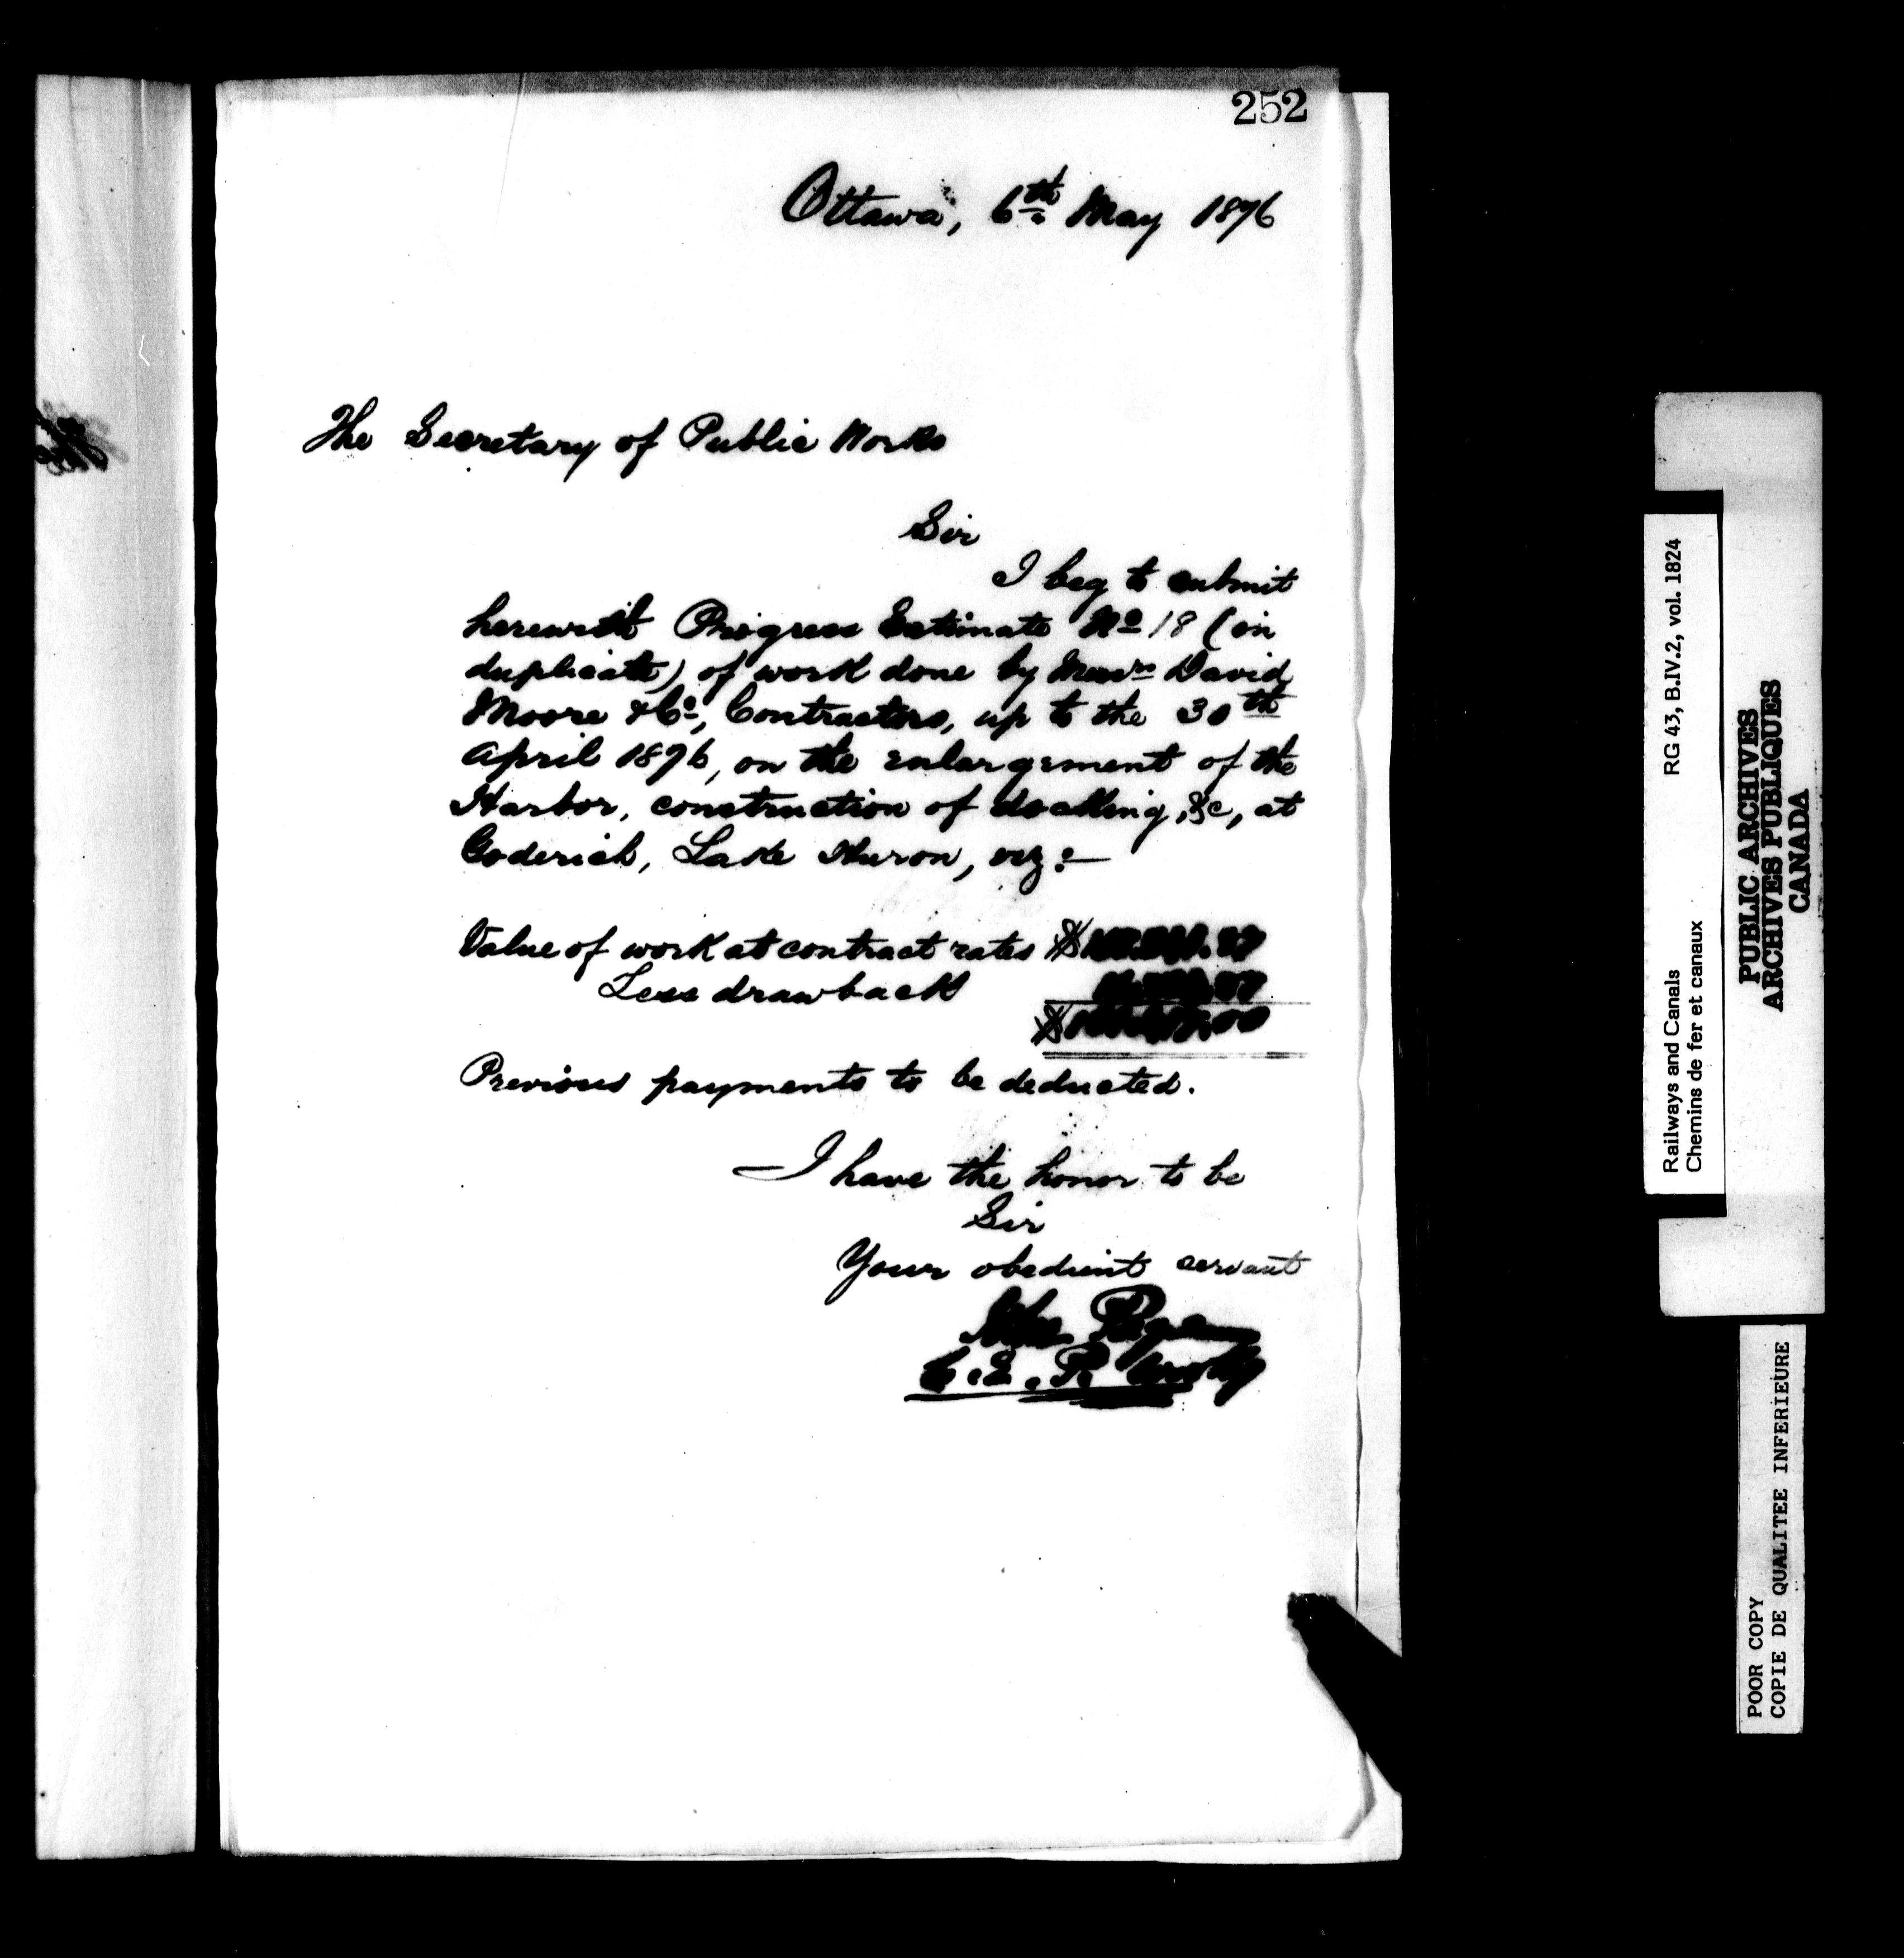 252
Ottawa, 6th May 1876
The Secretary of Public Works
Sir
I beg to submit
herewith Progress Estimate No 18 (in
duplicate) of work done by Messrs David
Moore & Co, Contractors, up to the 30th
April 1876, on the enlargement of the
Harbor, construction of docking, &c, at
Goderich, Lake Huron, viz:—
Value of work at contract rates $
Less drawback
$
Previous payments to be deducted.
I have the honor to be
Sir
Your obedient servant
John Page
C.E. P. Works
Railways and Canals RG 43, B.IV.2, vol. 1824
Chemins de fer et canaux
PUBLIC ARCHIVES
ARCHIVES PUBLIQUES
CANADA
POOR COPY
COPIE DE QUALITEE INFERIEURE